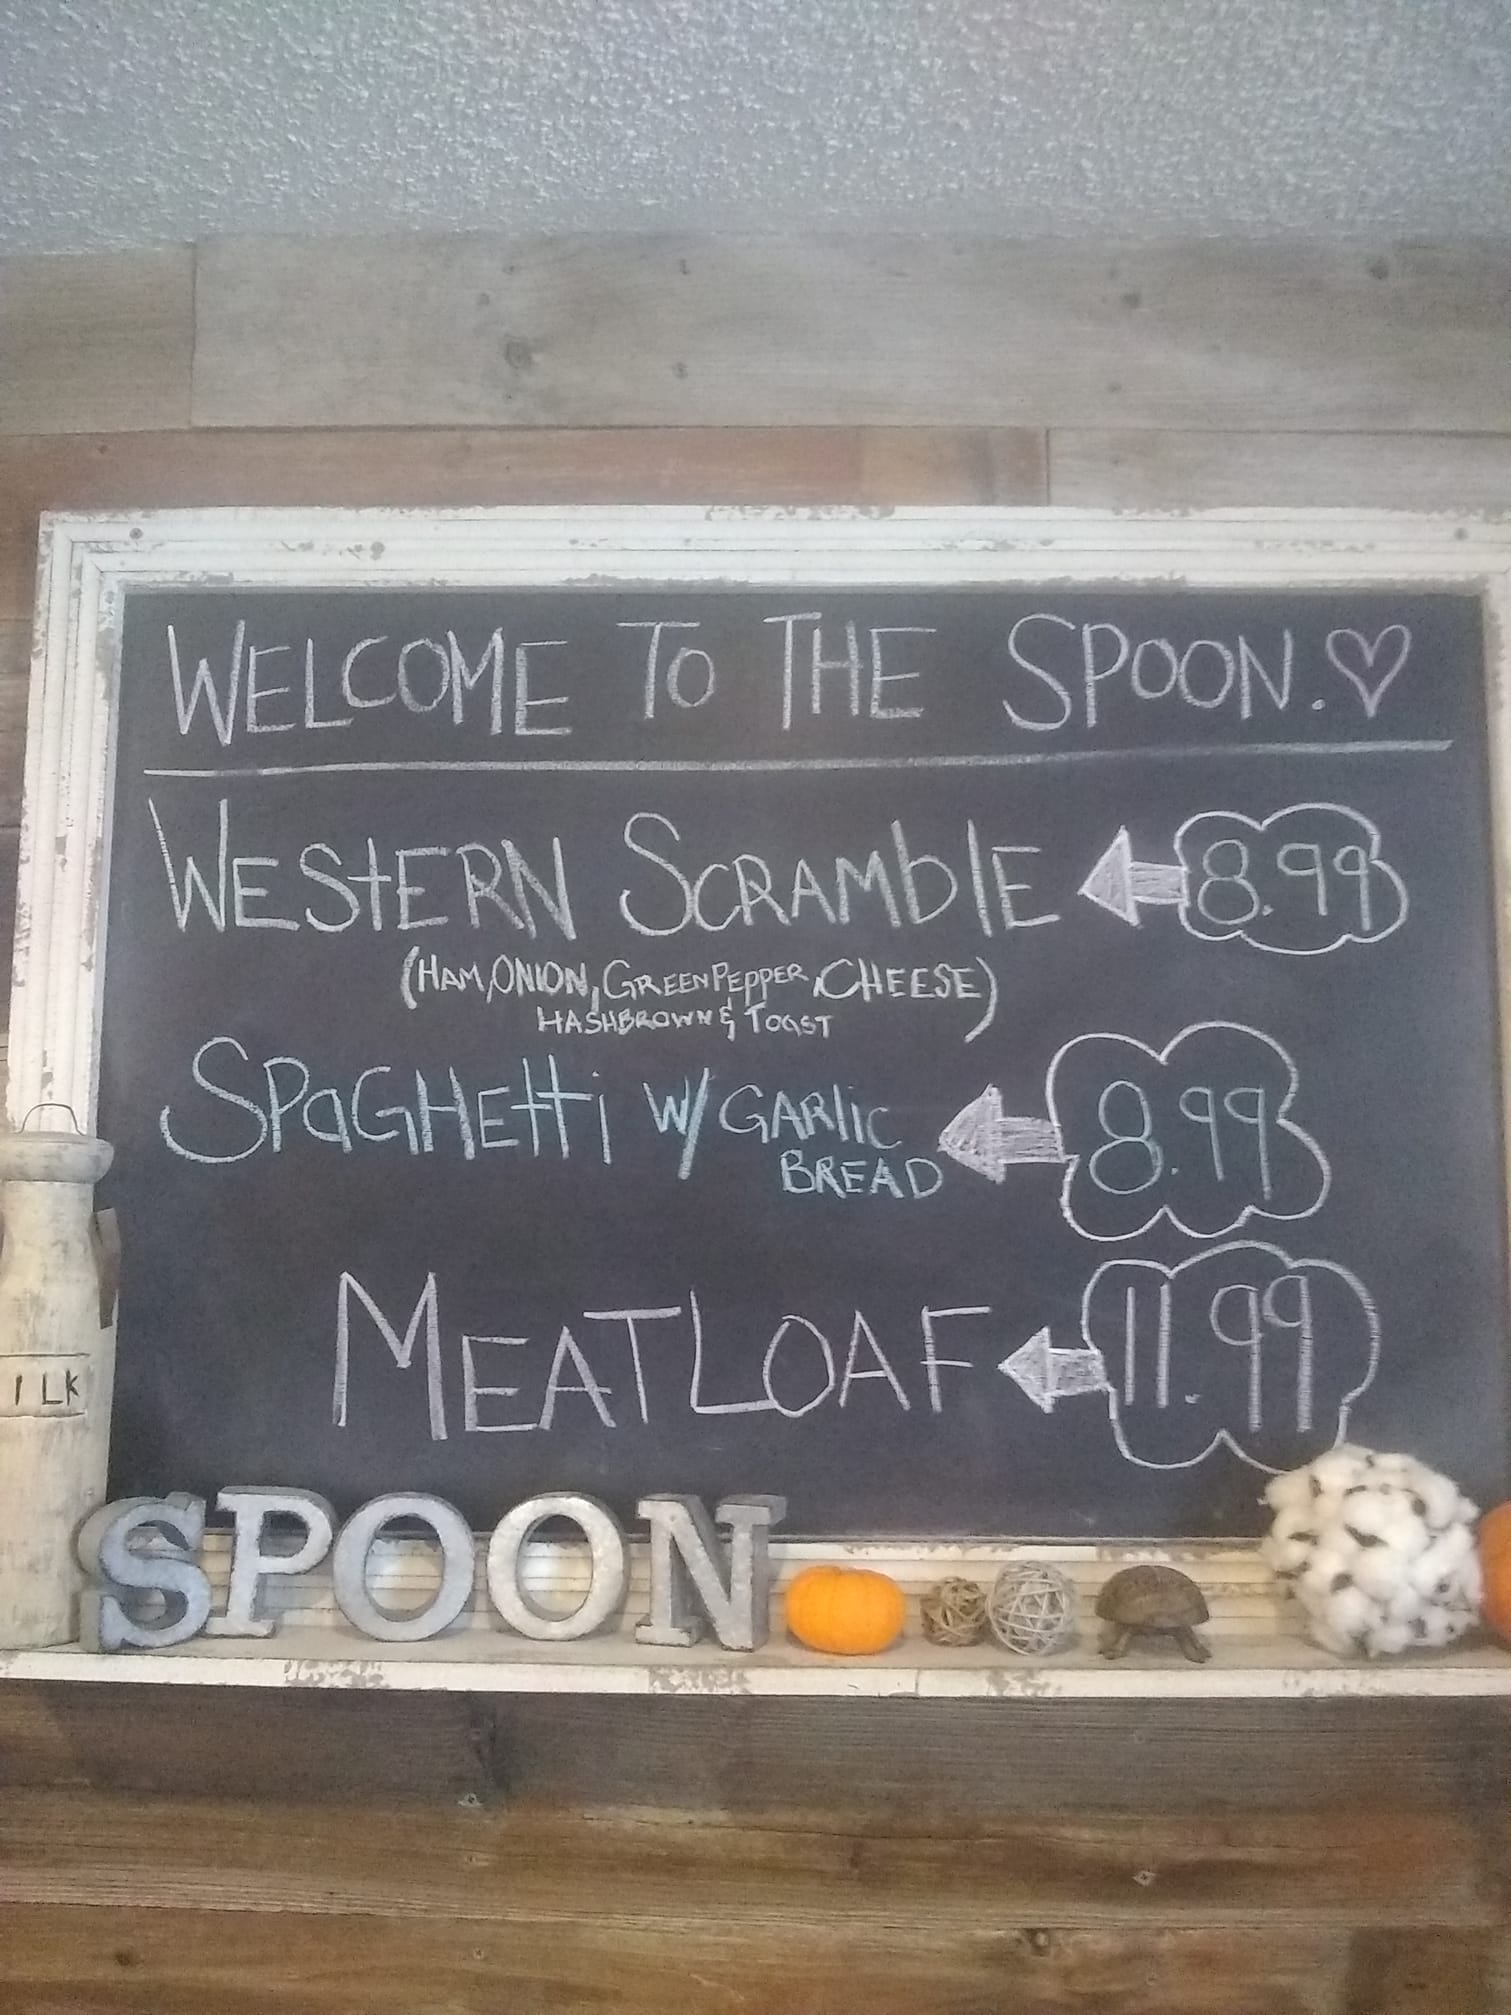 WELCOME TO THE SPOON. ♡
WEStERN SCRAMblE 8.99
(HAM, ONION, GREEN PEPPER, CHEESE)
HASHBROWN & TOaST
SPaGHEtti W/ GARlic 8.99
BREAD
MEATLOAF 11.99
ILK
SPOON